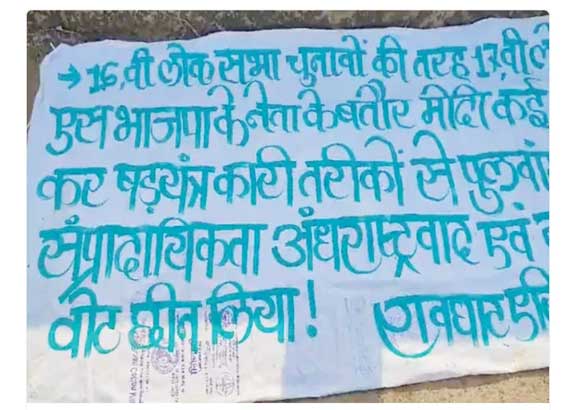 → 16,वी लोक सभा चुनावों की तरह 17,वी लो
एस भाजपा के नेता के बतौर मोदी कई
कर षड़यंत्र कारी तरीकों से पुलवा
संप्रादायिकता अंधराष्ट्रवाद एवं
वोट छीन लिया!